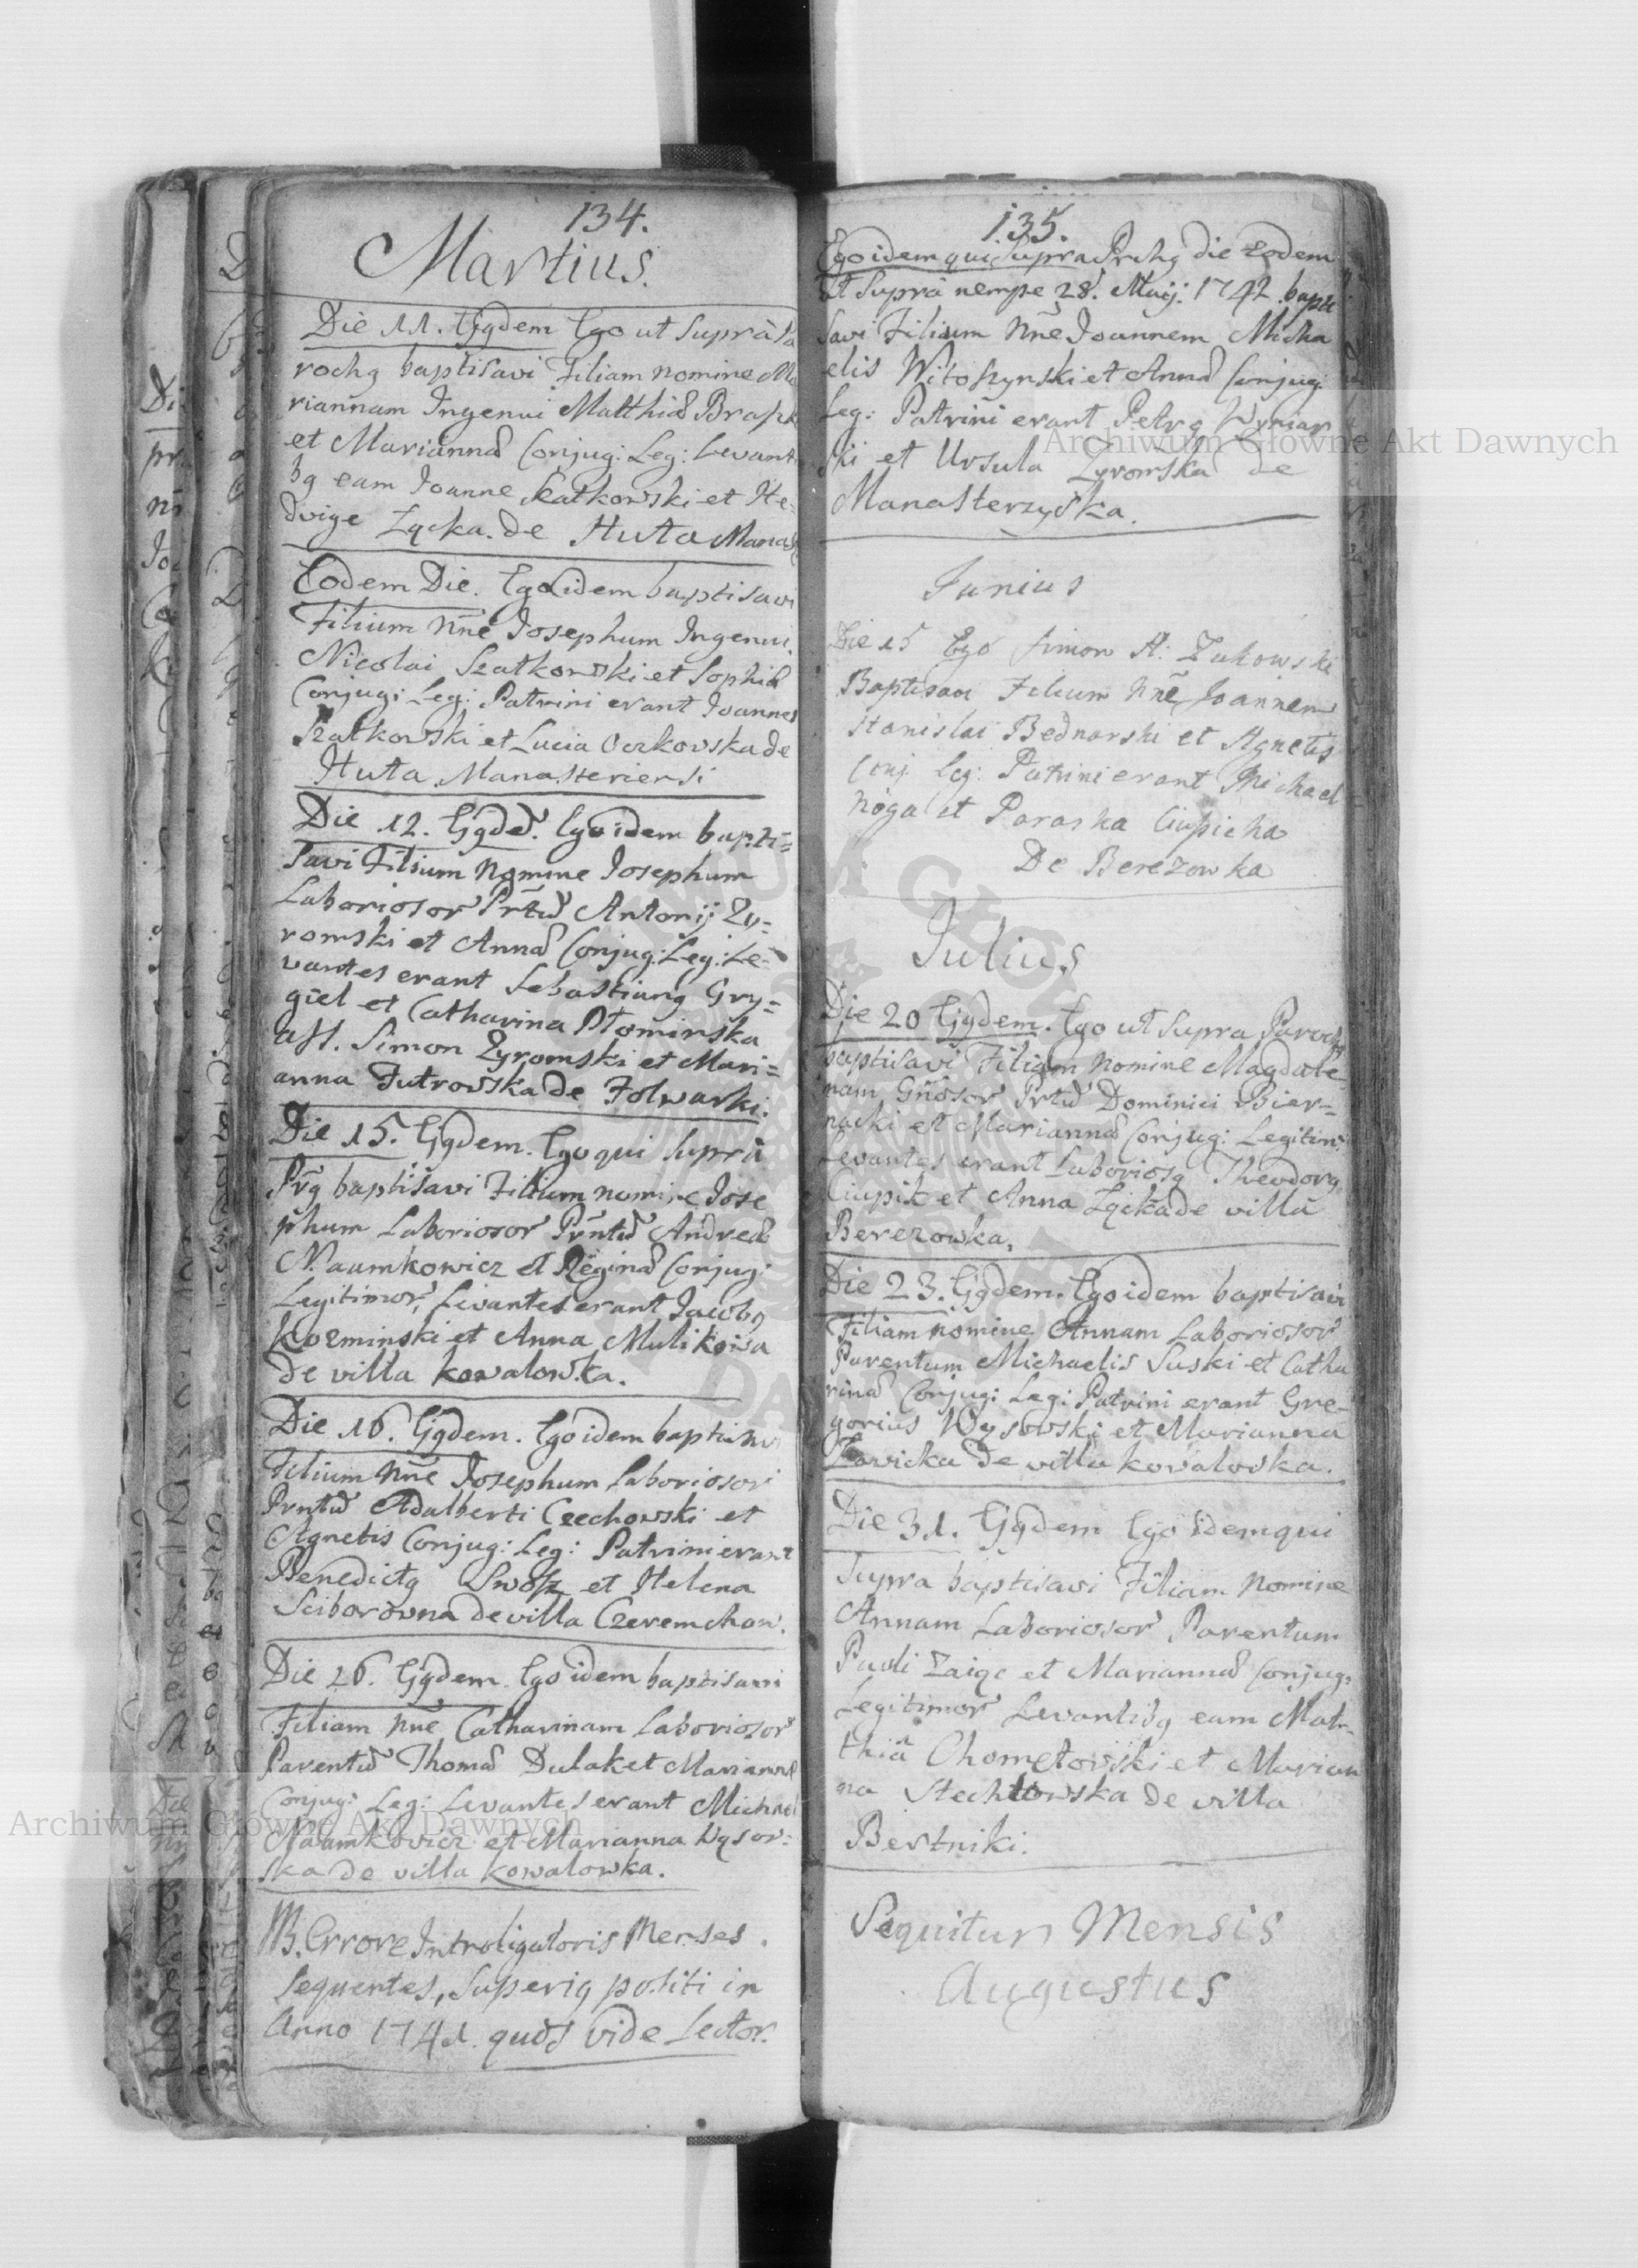 134.
Martius.
Die 11. Ejqdem Ego ut Suprà Pa
rochq baptisavi Filiam nomine Ma
riannam Ingenui Matthiæ
et Mariannæ Conjug: Leg: Levanti
bq eam Joanne Szatkowski et He=
dvige Zycka. de Huta Manas
Eodem Die. Ego idem baptisavi
Filium Nñe Josephum Ingenui
Nicolai Szatkowski et Sophiæ
Conjug: Leg: Patrini erant Joannes
Szatkowski et Lucia de
Huta Manasteriensi
Die 12. Ejqdẽ. Ego idem bapti=
savi Filium Nomine Josephum
Laborioso﻿r Prtũ Antonij Zy=
romski et Annæ Conjug: Leg: Le=
vantes erant Sebastianq Gry=
giel et Catharina Płominska
Ass. Simon Zyromski et Mari=
anna Futrowska de Folwarki.
Die 15. Ejqdem. Ego qui Suprà
Prq baptisavi Filium nomine Jose
phum Laboriosor Prntũ Andreæ
Naumkowicz et Reginæ Conjug:
Legitimor, Levantes erant Jacobq
Kozminski et Anna Mulikowa
de villa Kowalowka.
Die 16. Ejqdem. Ego idem baptisavi
Filium Nñe Josephum Laboriosor
Prntũ Adalberti Czechowski et
Agnetis Conjug: Leg: Patrini erant
Benedictq et Helena
Sciborowna de villa Czeremchow.
Die 26. Ejqdem. Ego idem baptisavi
Filiam Nñe Catharinam Laboriosor
Parentũ Thomæ Dulak et Mariannæ
Conjug: Leg: Levantes erant Michael
Naumkovicz et Marianna Wysov=
ska de villa Kowalowka.
NB. Errore Introligatoris Menses
sequentes, Superiq positi in
Anno 1741. quos vide Lector.
135.
Ego idem qui Supra Prchq die eodem
ut Suprà nempe 28. Maij. 1742 bapti
savi Filium Nñe Joannem Micha
elis Witoszynski et Annæ Conjug:
Leg: Patrini erant Petrq Wyniar
ski et Ursula Zyromska de
Manasterzyska.
Junius
Die 15 Ego Simon A: Zukowski
Baptisavi Filium Nñe Joannem
Stanislai Bednarski et Agnetis
Conj. Leg: Patrini erant Michael
Noga et Paraska Ciupicha
De Berezowka
Julius
Die 20 Ejqdem. Ego ut Supra Parochq
baptisavi Filiam Nomine Magdale
nam Gñosor Prtũ Dominici Bier=
nacki et Mariannæ Conjug: Legitim:
Levantes erant Laboriosq Theodorq
Ciupik et Anna Zycka de villa
Berezowka.
Die 23. Ejqdem. Ego idem baptisavi
Filiam nomine Annam Laboriosor
Parentum Michaelis Suski et Catha
rinæ Conjug: Leg: Patrini erant Gre=
gorius Wysowski et Marianna
Zawicka de villa Kovalovka.
Die 31. Ejqdem Ego idem qui
Supra baptisavi Filiam Nomine
Annam Laboriosor Parentum
Pauli Zaiqc et Mariannæ Conjug:
Legitimor Levantibq eam Mat=
thiâ Chometowski et Marian
na Stechlowska de villa
Bertniki.
Sequitur Mensis
Augustus
Archiwum Główne Akt Dawnych
Archiwum Główne Akt Dawnych